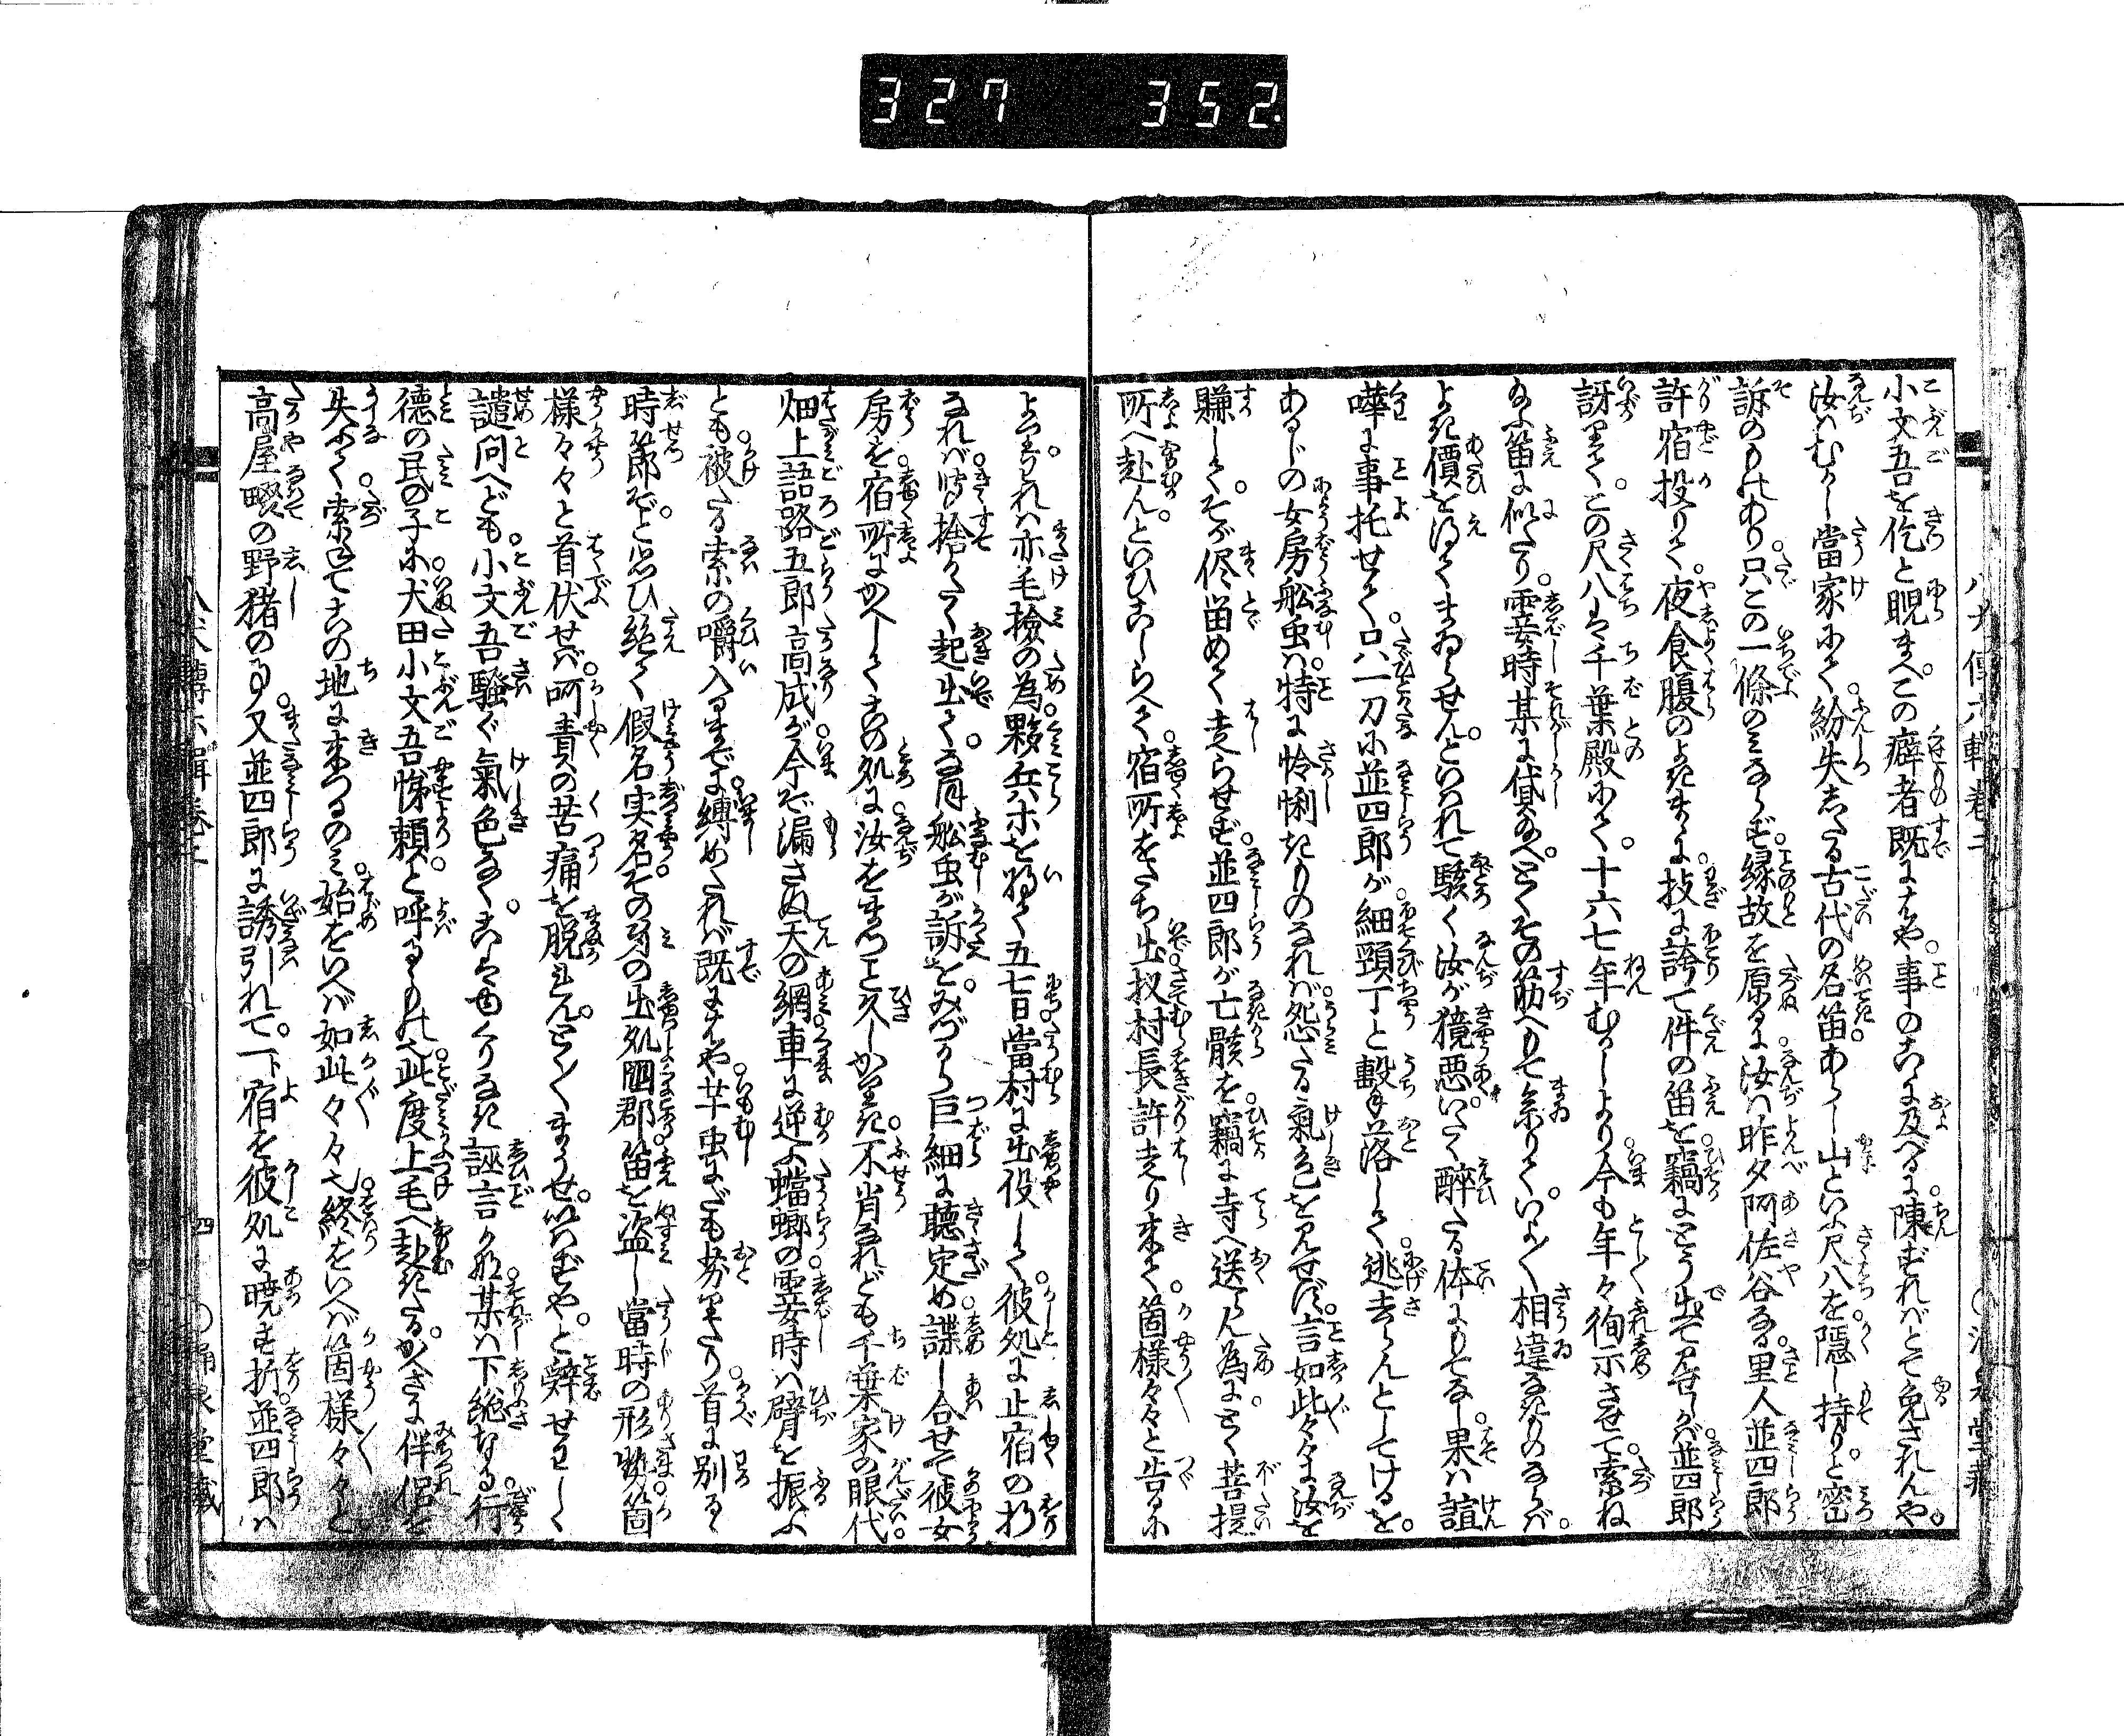 327 352
小文吾を佶と睨まへこの癖者既にはや事のこゝに及べるに陳ずればとて免されんや
汝はむかし當家にて紛失したる古代の名笛あらし山といふ尺八を隱し持りと密
訴のものあり只この一條のみならず縁故を原るに汝は昨夕阿佐谷なる里人並四郎
許宿投りて夜食腹のよきまゝに技に誇て件の笛を竊にとう出て見せしが並四郎
訝りてこの尺八は千葉殿にて十六七年むかしより今も年々徇示させて索ね
給ふ笛に似たり霎時某に貸給へとくその筋へもて參りていよ／＼相違なきものならば
よき價を得てまゐらせんといはれて駭く汝が獍悪いたく醉たる体にもてなし果は諠
嘩に事托せて只一刀に並四郎が細頸丁と擊落して逃去らんとしてけるを
あるじの女房舩虫は特に怜悧きものなれば怨たる氣色を見せず言如此々々に汝を
賺してそが侭留めて走らせず並四郎が亡骸を竊に寺へ送らん為にとく菩提
所へ赴んといひこしらへて宿所をたち出扠村長許走り來て箇様々々と告るに
よつてこれは亦毛撿の為夥兵ホを將て五七日當村に出役して彼処に止宿の折
なれば聞捨かたく起出て為体舩虫が訴をみづから巨細に聽定め諜し合せて彼女
房を宿所にかへしてこの処に汝をまつこと久しかりき不肖なれども千葉家の眼代
畑上語路五郎高成が今ぞ漏さぬ天の網車に逆ふ蟷螂の霎時は臂を振ふ
とも被たる索の嚼入るまでに縛めたれば既にはや芋虫にだも劣りたり首に別るゝ
時節ぞと思ひ絶て假名実名その身の出処國郡笛を盗し當時の形勢箇
様々々と首伏せば呵責の苦痛を脱れんとく／＼まうせいはずやと辭せわしく
譴問へども小文吾騷ぐ氣色なくこは思ひもかけなき誣言かな某は下総なる行
德の民の子に犬田小文吾悌順と呼るゝもの也此度上毛へ赴きたるかへさに伴侶を
失ふて索ねてこの地に來つるのみ始をいへば如此々々也終をいへば箇様々々と
高屋畷の野猪の事又並四郎に誘引れて一下宿を彼処に暁す折並四郎は
八犬傳六輯巻二
四